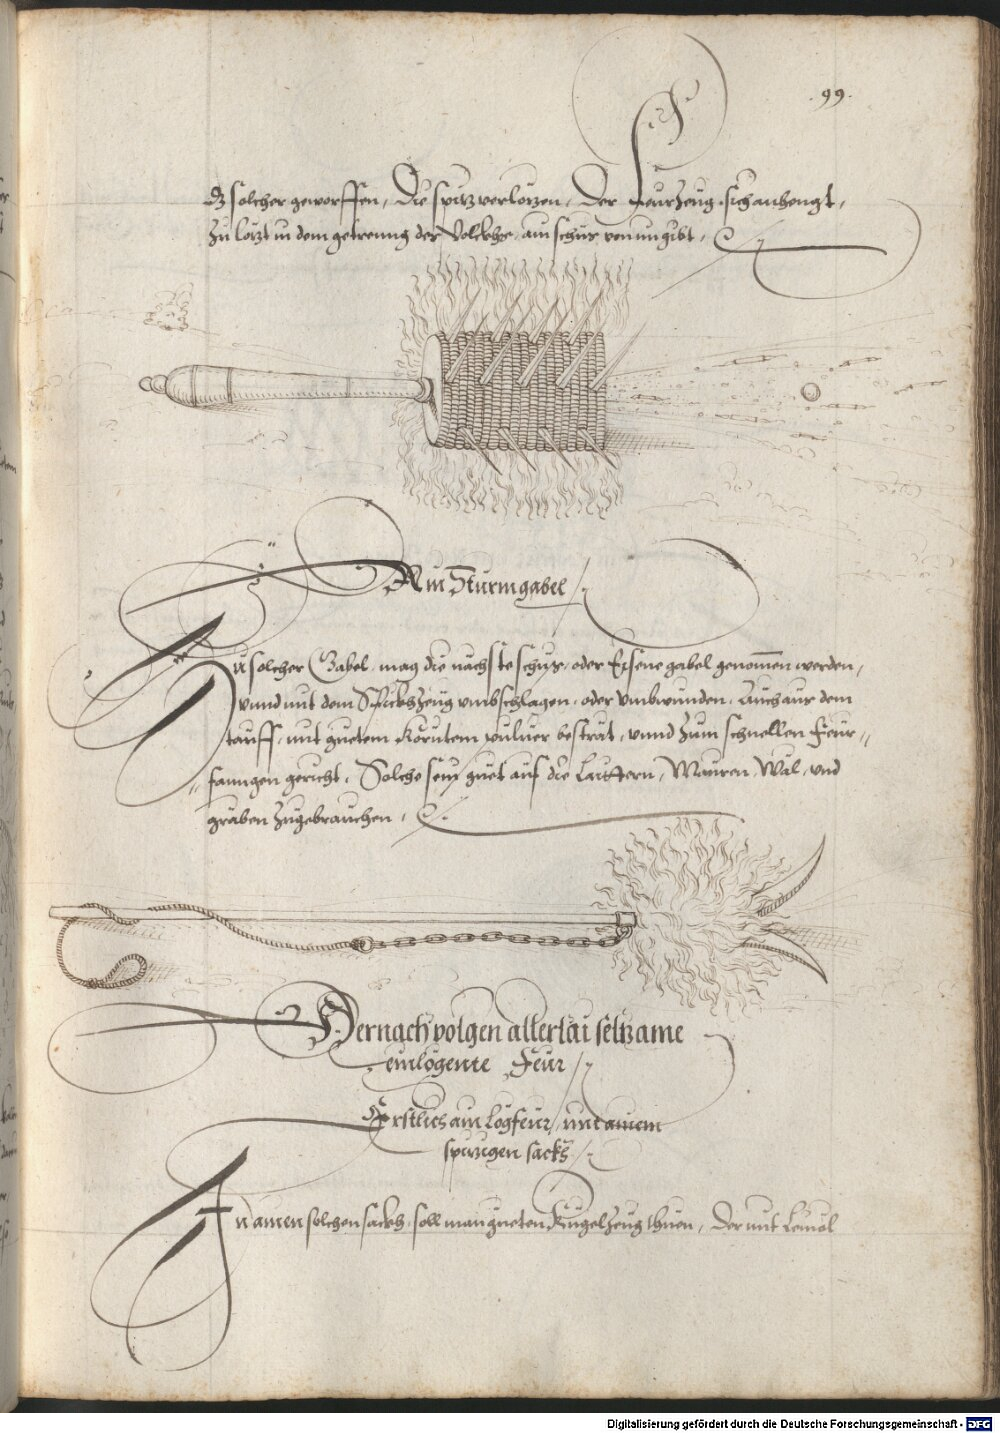 .99.
solcher geworffen, die spitz verlorzen, Der Feurzeug sich anhengt,
Zu in dem getreung der Volckhs, ain schür
Ain Sturmgabel
Zu solcher Gabel, mag die nächste schür, oder Eysene gabel genomen werden,
vnnd mit dem Stückhzeug vmbschlagen, oder vmbwunden, Auch aus dem
tauff, mit guetem Korntem puluer besträt, vnnd zum schnellen Feur„
„fanngen gericht, Solche sein guet auf die Laittern, Mauren, Wäl, vnd
gräben zugebrauchen,
Hernach volgen allerlai seltzame
einlögente Feur
Erstlich ain Lögfeur, mit ainem
spitzigen sackh
In ainen solchen sackh, soll man gueten Kugelzeug thuen, der mit Leinöl
Digitalisierung gefördert durch die Deutsche Forschungsgemeinschaft - DFG